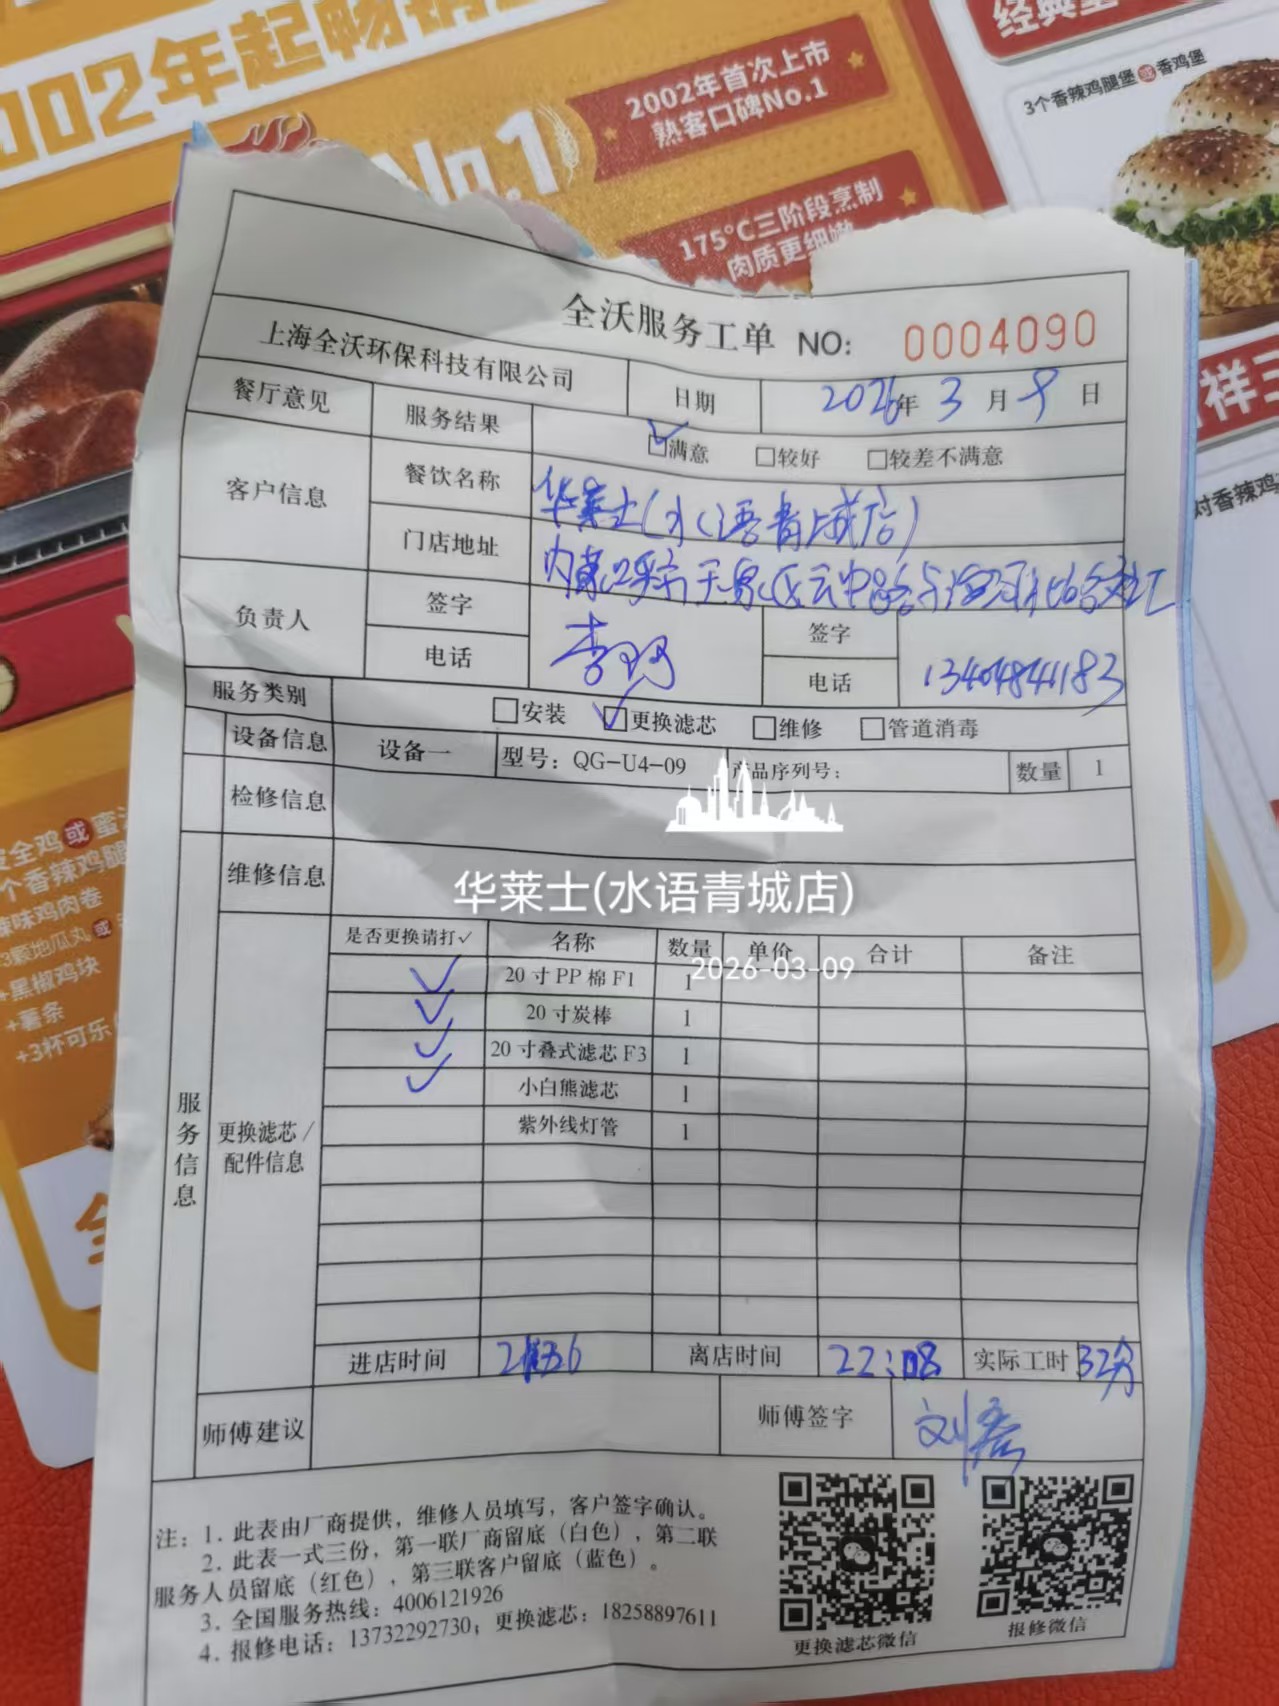 002年起畅销
No.1
2002年首次上市
熟客口碑No.1
175°C三阶段烹制
肉质更细嫩
经典
3个香辣鸡腿堡或香鸡堡
祥
对香辣鸡
全鸡或蜜
个香辣鸡腿
辣味鸡肉卷
3颗地瓜丸或
+黑椒鸡块
+薯条
+3杯可乐
全沃服务工单 NO: 0004090
上海全沃环保科技有限公司 日期 2026年 3 月 9 日
餐厅意见 服务结果 ☑满意 □较好 □较差不满意
客户信息 餐饮名称 华莱士(水语青城店)
门店地址 区云中路与
负责人 签字 签字
电话 电话 13404844183
服务类别 □安装 ☑更换滤芯 □维修 □管道消毒
设备信息 设备一 型号：QG-U4-09 产品序列号： 数量 1
检修信息
维修信息
华莱士(水语青城店)
2026-03-09
服务信息
更换滤芯/
配件信息
是否更换请打✓ 名称 数量 单价 合计 备注
✓ 20寸PP棉F1 1
✓ 20寸炭棒 1
✓ 20寸叠式滤芯F3 1
✓ 小白熊滤芯 1
紫外线灯管 1
进店时间 离店时间 22:08 实际工时 32分
师傅建议 师傅签字
注：1. 此表由厂商提供，维修人员填写，客户签字确认。
2. 此表一式三份，第一联厂商留底（白色），第二联
服务人员留底（红色），第三联客户留底（蓝色）。
3. 全国服务热线：4006121926
4. 报修电话：13732292730；更换滤芯：18258897611
更换滤芯微信
报修微信